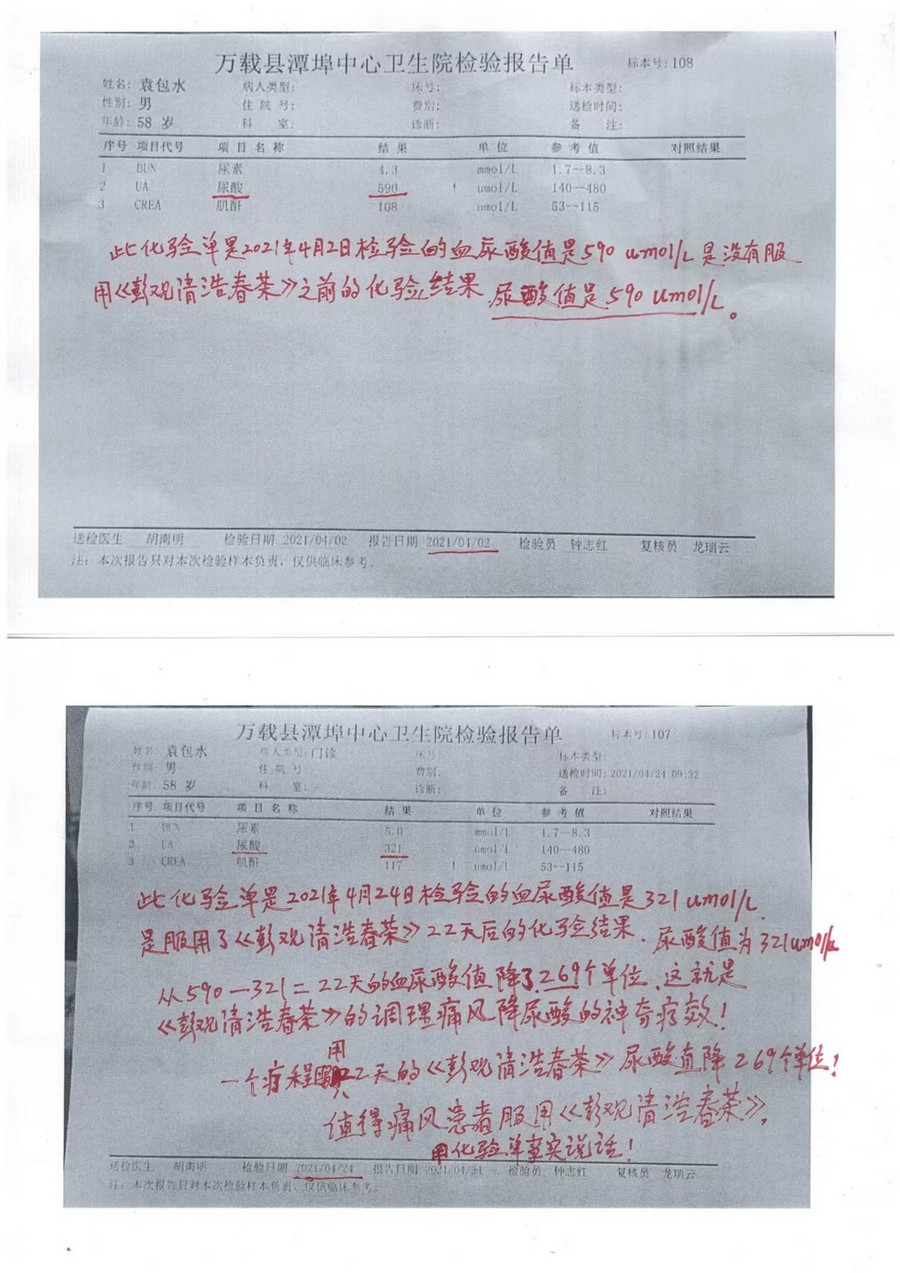 万载县潭埠中心卫生院检验报告单 标本号:108
姓名: 袁包水 病人类型: 床号: 标本类型:
性别: 男 住院号: 费别: 送检时间:
年龄: 58 岁 科室: 诊断: 备注:
序号 项目代号 项目名称 结果 单位 参考值 对照结果
1 BUN 尿素 4.3 mmol/L 1.7--8.3
2 UA 尿酸 590 ↑ umol/L 140--480
3 CREA 肌酐 108 umol/L 53--115
此化验单是2021年4月2日检验的血尿酸值是590 umol/L是没有服
用《彭观清浩春茶》之前的化验结果.尿酸值是590 umol/L。
送检医生 胡南明 检验日期 2021/04/02 报告日期 2021/04/02 检验员 钟志红 复核员 龙瑞云
注: 本次报告只对本次检验样本负责, 仅供临床参考。
万载县潭埠中心卫生院检验报告单 标本号: 107
姓名: 袁包水 病人类型: 门诊 床号: 标本类型:
性别: 男 住院号: 费别: 送检时间: 2021/04/24 09:32
年龄: 58 岁 科室: 诊断: 备注:
序号 项目代号 项目名称 结果 单位 参考值 对照结果
1 BUN 尿素 5.0 mmol/L 1.7--8.3
2 UA 尿酸 321 umol/L 140--480
3 CREA 肌酐 117 ↑ umol/L 53--115
此化验单是2021年4月24日检验的血尿酸值是321 umol/L.
是服用了《彭观清浩春茶》22天后的化验结果.尿酸值为321umol/L
从590-321=22天的血尿酸值降了269个单位.这就是
《彭观清浩春茶》的调理痛风降尿酸的神奇疗效!
一个疗程用22天的《彭观清浩春茶》尿酸直降269个单位!
值得痛风患者服用《彭观清浩春茶》,
用化验单事实说话!
送检医生 胡南明 检验日期 2021/04/24 报告日期 2021/04/24 检验员 钟志红 复核员 龙瑞云
注: 本次报告只对本次检验样本负责, 仅供临床参考。